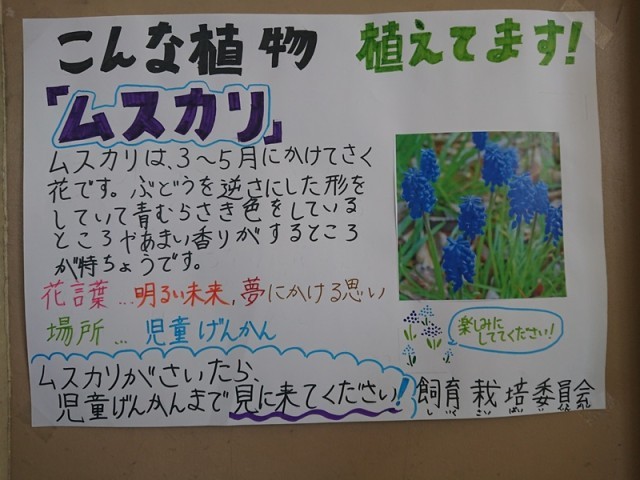 こんな植物 植えてます!
「ムスカリ」
ムスカリは、3〜5月にかけてさく
花です。ぶどうを逆さにした形を
していて青むらさき色をしている
ところやあまい香りがするところ
が特ちょうです。
花言葉…明るい未来,夢にかける思い
場所… 児童げんかん
楽しみに
しててください!
ムスカリがさいたら、
児童げんかんまで見に来てください!
飼育栽培委員会
しいくさいばいいいんかい